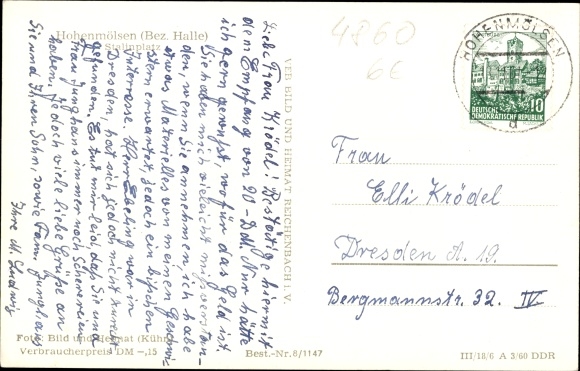 Hohenmölsen (Bez. Halle)
Stalinplatz
Liebe Frau Krödel! Bestätige hiermit
den Empfang von 20.- DM. Nur hätte
ich gern gewußt, wofür das Geld ist.
Sie haben mich vielleicht mißverstan-
den, wenn Sie annehmen, ich habe
etwas Materielles von meinen Geschwi-
stern erwartet. Jedoch ein bißchen
Interesse. Herr Ebeling war in
Dresden, hat sich jedoch nicht zurecht
gefunden. Es tut mir leid, daß Sie und
Frau Junghans immer noch Scherereien
haben. Jedoch viele liebe Grüße an
Sie und Ihren Sohn, sowie Fam. Junghans
Ihre M. Ludwig
VEB BILD UND HEIMAT REICHENBACH i. V.
4860
6E
HOHENMÖLSEN
d
10
DEUTSCHE
DEMOKRATISCHE REPUBLIK
Frau
Elli Krödel
Dresden A. 19.
Bergmannstr. 32. IV.
Foto: Bild und Heimat (Kühn)
Verbraucherpreis DM -,15
Best.-Nr. 8/1147
III/18/6 A 3/60 DDR